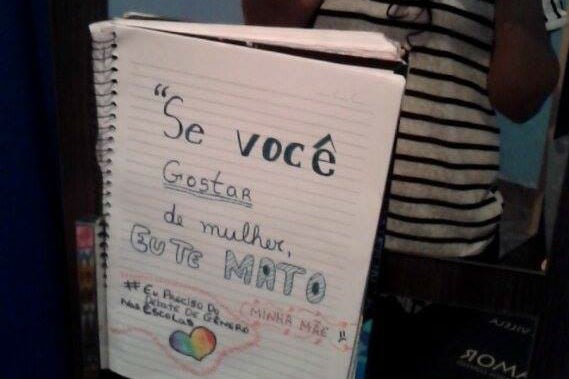 "Se você
Gostar
de mulher,
EU TE MATO
MINHA MÃE !!
# EU PRECISO DO
DEBATE DE GÊNERO
NAS ESCOLAS
AMOR